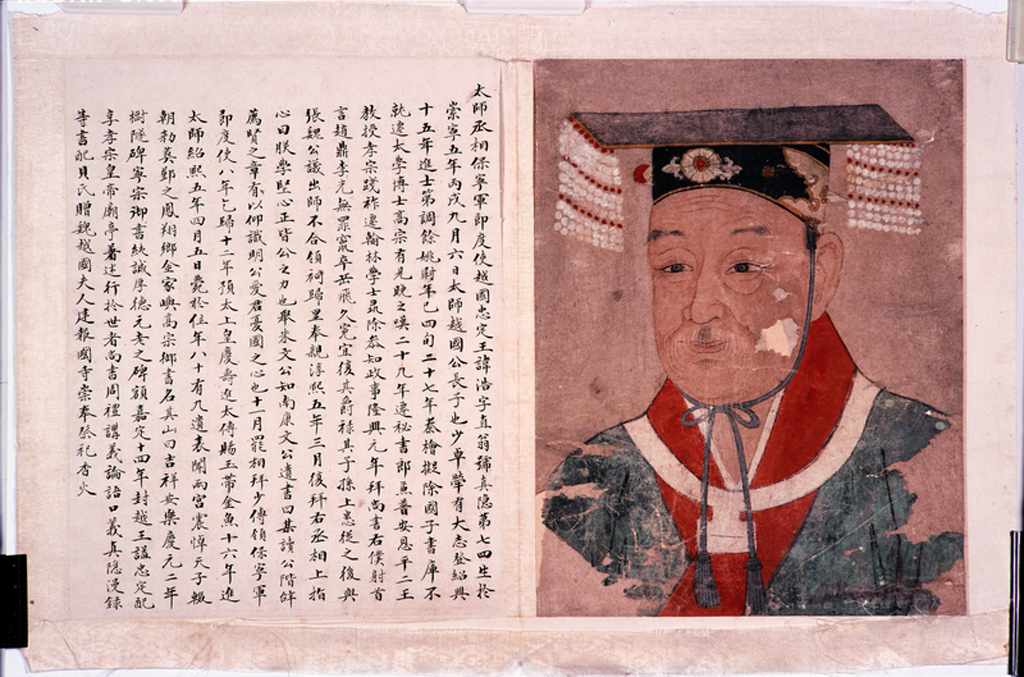 太師丞相保寧軍節度使越國忠定王諱浩字直翁號真隱第七四生於
崇寧五年丙戌九月六日太師越國公長子也少卓犖有大志登紹興
十五年進士第調餘姚尉年已四旬二十七年秦檜擬除國子書庫不
就遷太學博士高宗有見晚之嘆二十九年遷秘書郎兼普安恩平二王
教授孝宗踐祚遷翰林學士尋除叅知政事隆興元年拜尚書右僕射首
言趙鼎李光無罪竄卒岳飛久冤宜復其爵祿其子孫上悉從之後與
張魏公議出師不合領祠歸里奉親淳熙五年三月復拜右丞相上指
心曰朕學堅心正皆公之力也舉朱文公知南康文公遺書曰某讀公階辭
薦賢之章有以仰識明公愛君憂國之心也十一月罷相拜少傅領保寧軍
節度使八年乞歸十二年預太上皇慶壽進太傅賜玉帶金魚十六年進
太師紹熙五年四月五日薨於位年八十有九遺表聞兩宮震悼天子輟
朝勅葬鄞之鳳翔鄉金家嶴高宗御書名其山曰吉祥安樂慶元二年
樹隧碑寧宗御書純誠厚德元老之碑額嘉定十四年封越王謚忠定配
享孝宗皇帝廟亭著述行於世者尚書周禮講義論語口義真隱漫錄
等書配貝氏贈魏越國夫人建報國寺崇奉祭祀香火